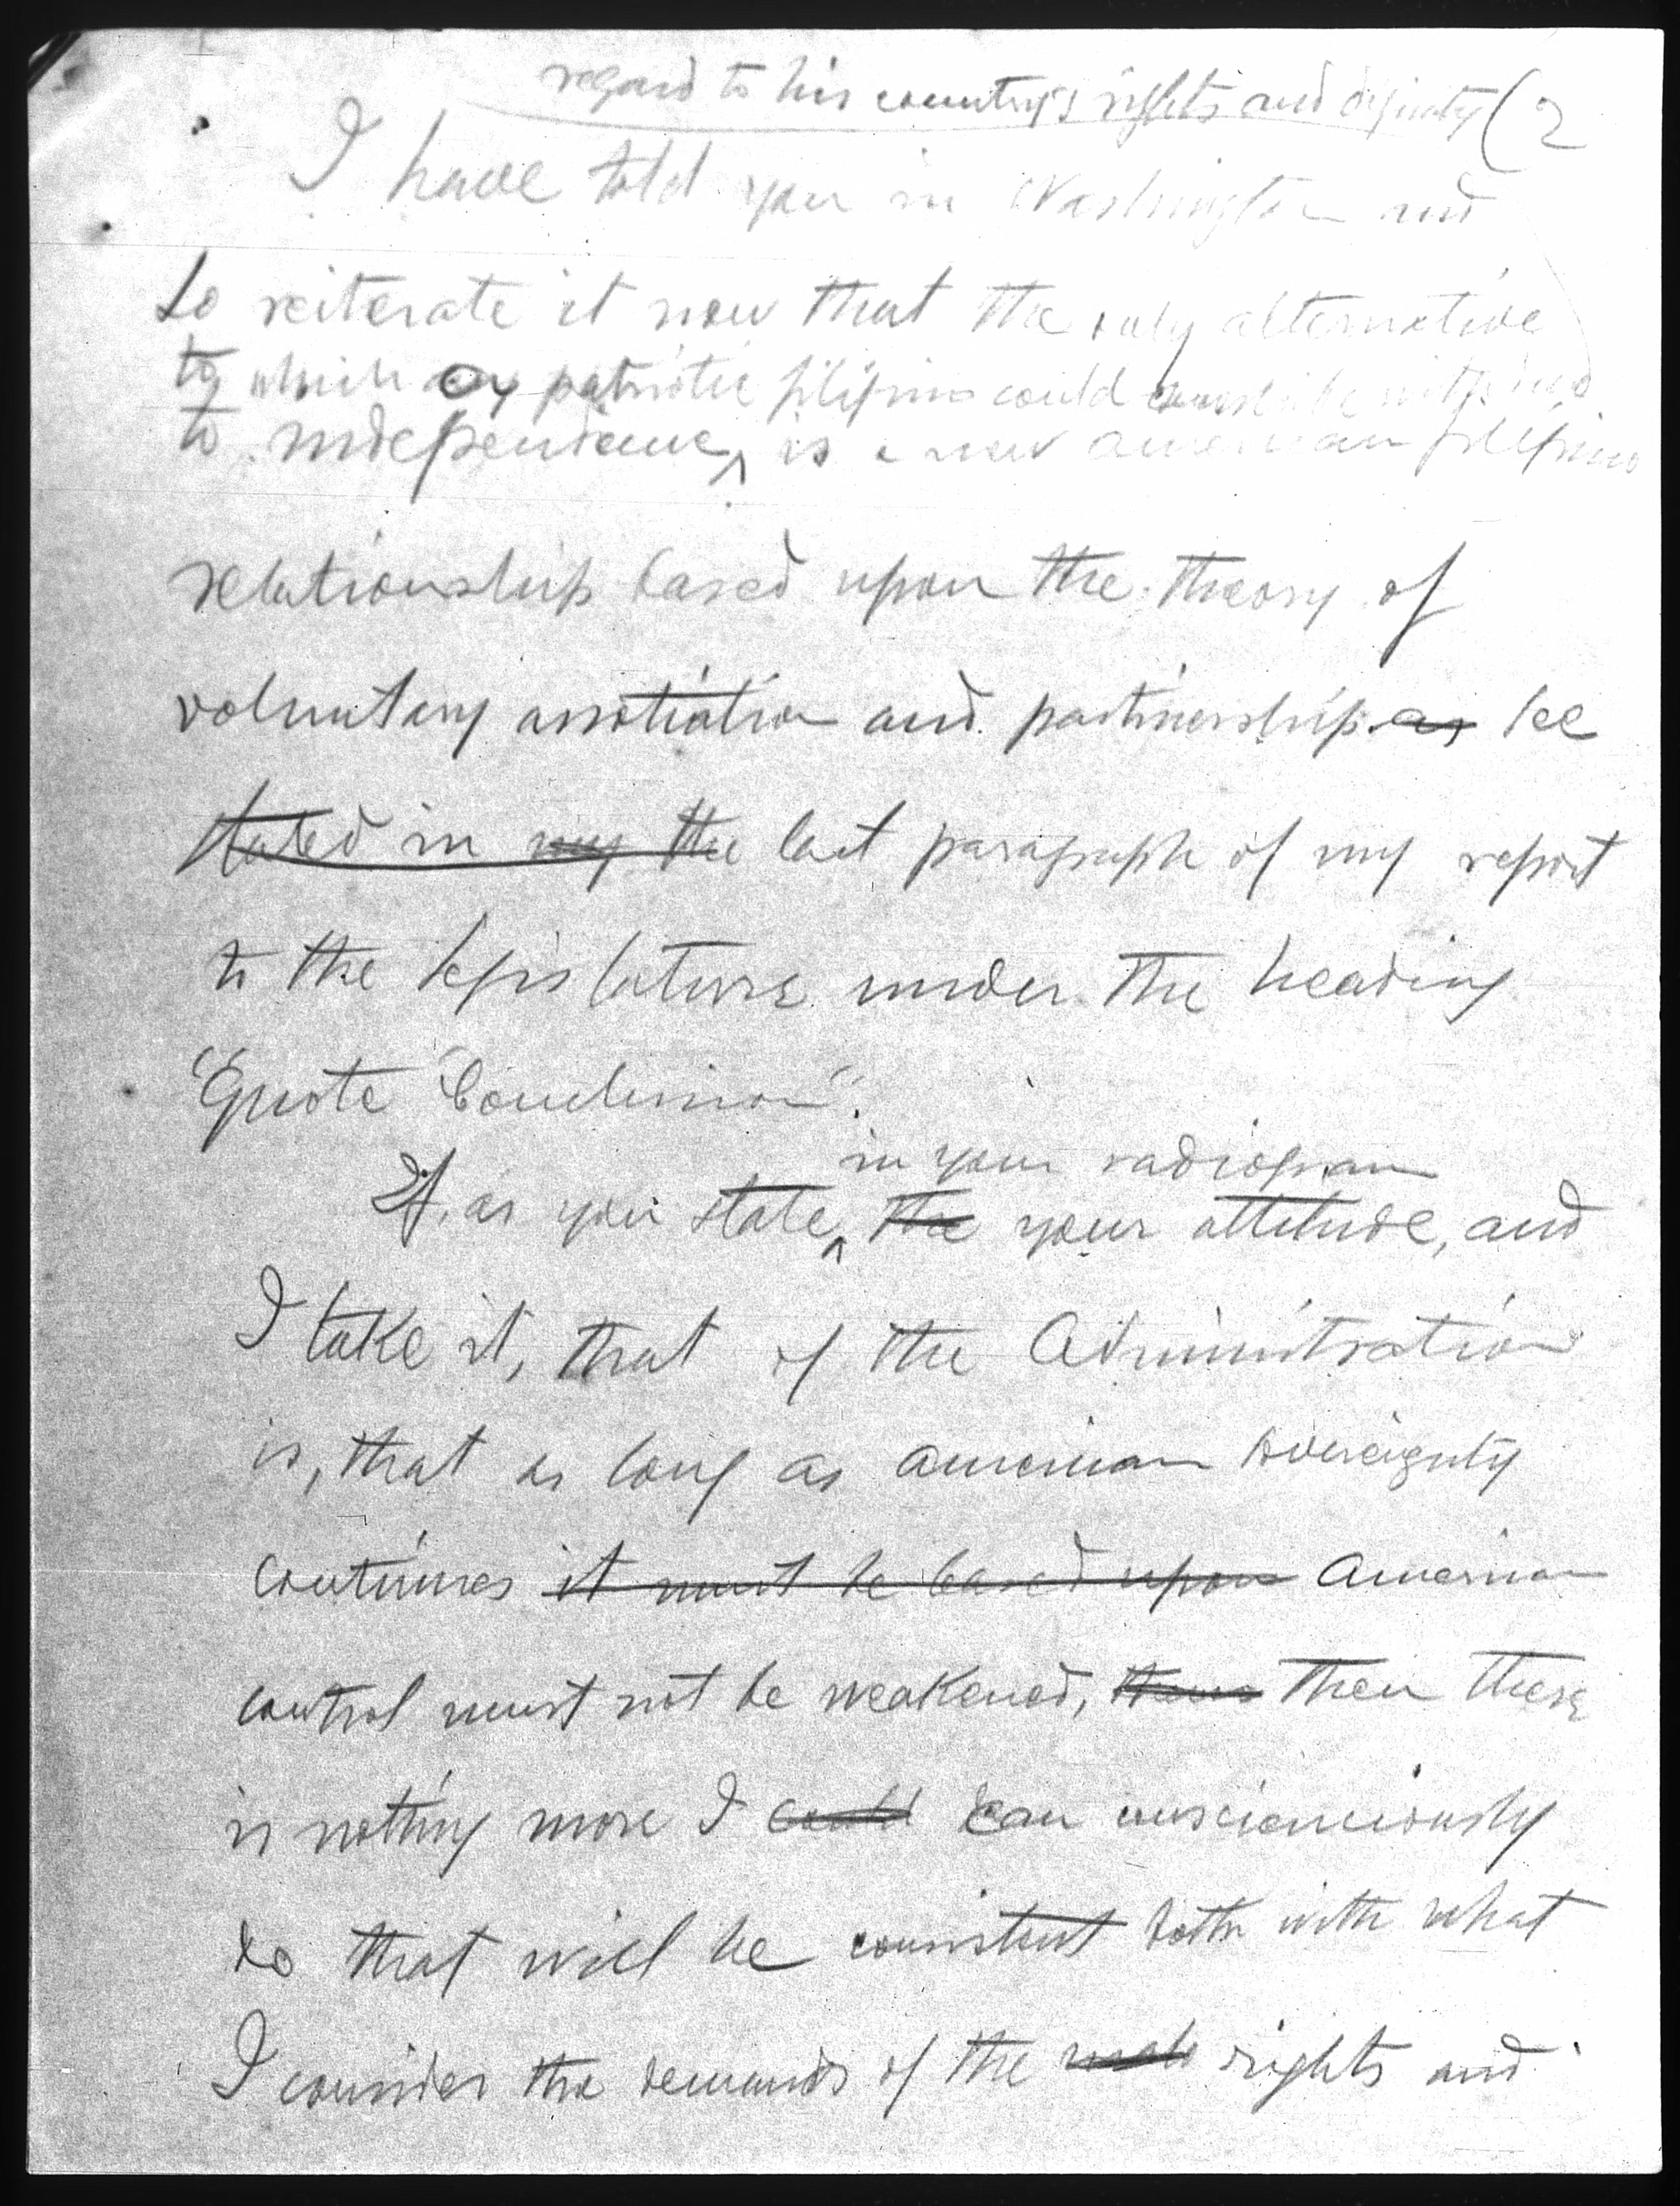 regard to his country's rights and dignity (2
I have told you in Washington and
to reiterate it now that the only alternative
to which any patriotic filipino could
to independence, is a new american filipino
relationship based upon the theory of
voluntary association and partnership as See
stated in my the last paragraph of my report
to the legislature under the heading
"Quote "Conclusion".
in your radiogram
If, as you state, the your attitude, and
I take it, that of the Administration
is, that as long as american sovereignty
continues it must be based upon American
control must not be weakened, then there
is nothing more I could can consciensciously
do that will be consistent both with what
I consider the demands of the rights and